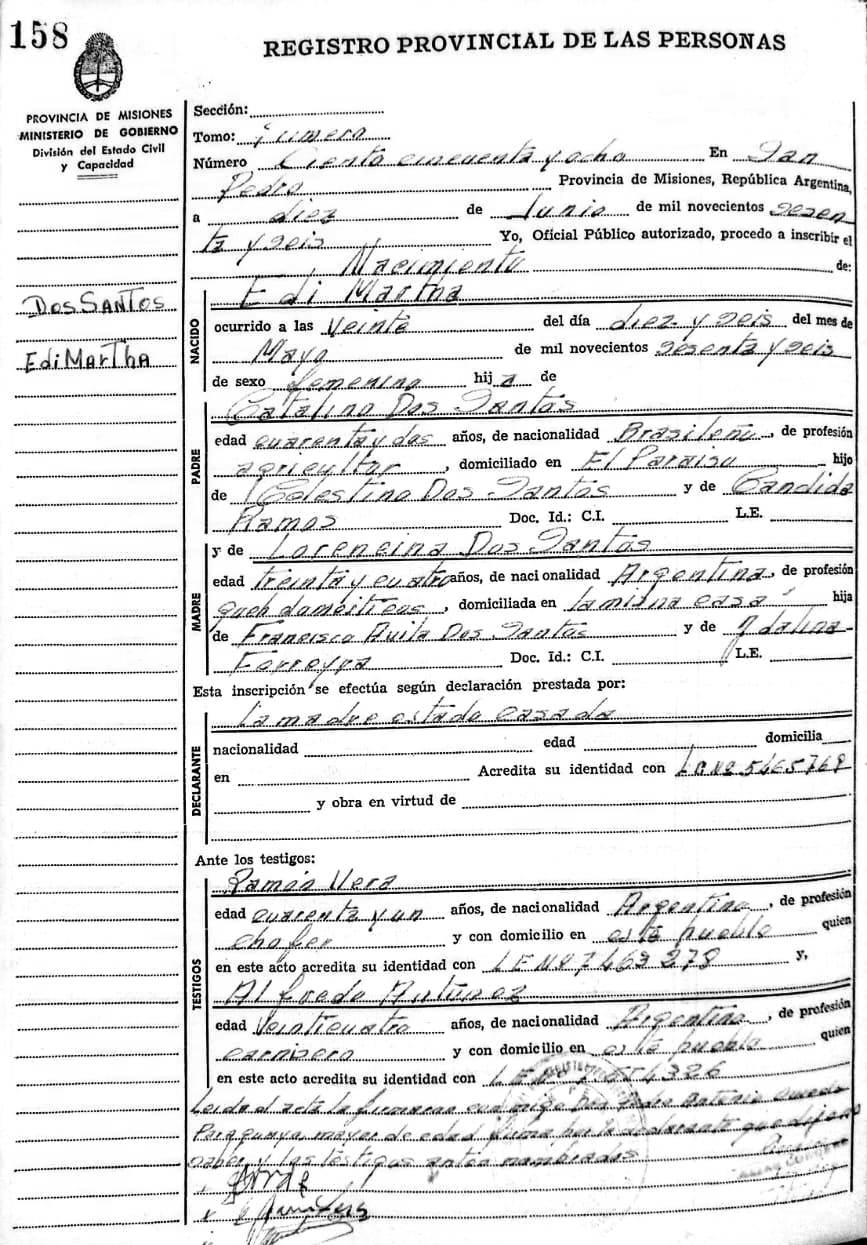 158
REGISTRO PROVINCIAL DE LAS PERSONAS
PROVINCIA DE MISIONES
MINISTERIO DE GOBIERNO
División del Estado Civil
y Capacidad
Dos SANTOS
Edi MARTha
Sección:
Tomo: Primero
Número Ciento cincuenta y ocho En San
Pedro Provincia de Misiones, República Argentina,
a diez de Junio de mil novecientos sesen
ta y seis Yo, Oficial Público autorizado, procedo a inscribir el
Nacimiento de:
NACIDO
Edi Martha
ocurrido a las Veinte del día diez y seis del mes de
Mayo de mil novecientos sesenta y seis
de sexo femenino hija de
PADRE
Catalino Dos Santos
edad cuarenta y dos años, de nacionalidad Brasileño, de profesión
agricultor, domiciliado en El Paraiso hijo
de Celestino Dos Santos y de Candida
Ramos Doc. Id.: C.I. L.E.
MADRE
y de Lorencina Dos Santos
edad treinta y cuatro años, de nacionalidad Argentina, de profesión
domiciliada en la misma casa hija
de Francisco Avila Dos Santos y de Idalina
Ferreyra Doc. Id.: C.I. L.E.
Esta inscripción se efectúa según declaración prestada por:
DECLARANTE
la madre estado casada
nacionalidad edad domicilia
en Acredita su identidad con
y obra en virtud de
Ante los testigos:
TESTIGOS
Ramón Vera
edad cuarenta y un años, de nacionalidad Argentino, de profesión
chofer y con domicilio en este pueblo quien
en este acto acredita su identidad con L E Nº 7469278 y,
Alfredo Antunez
edad Veinticuatro años, de nacionalidad Argentino, de profesión
carnicero y con domicilio en este pueblo quien
en este acto acredita su identidad con
Leida el acta la firmaron conmigo por Antonio
Paraguayo, mayor de edad firma por la declarante que dijo no
saber y los testigos antes nombrados